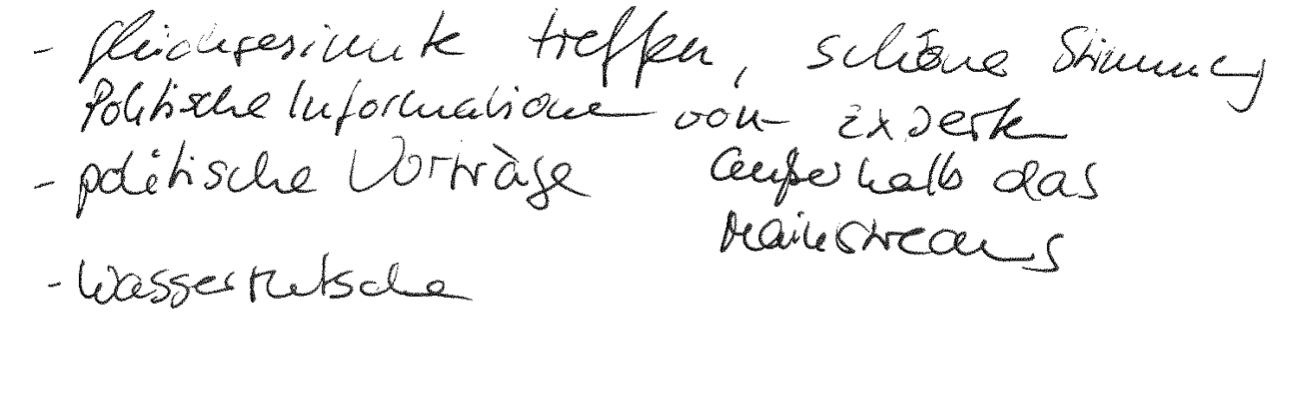 - gleichgesinnte treffen, schöne Stimmung
Politische Informationen von Experten
- politische Vorträge außerhalb das
Mainstreams
- Wasserrutsche